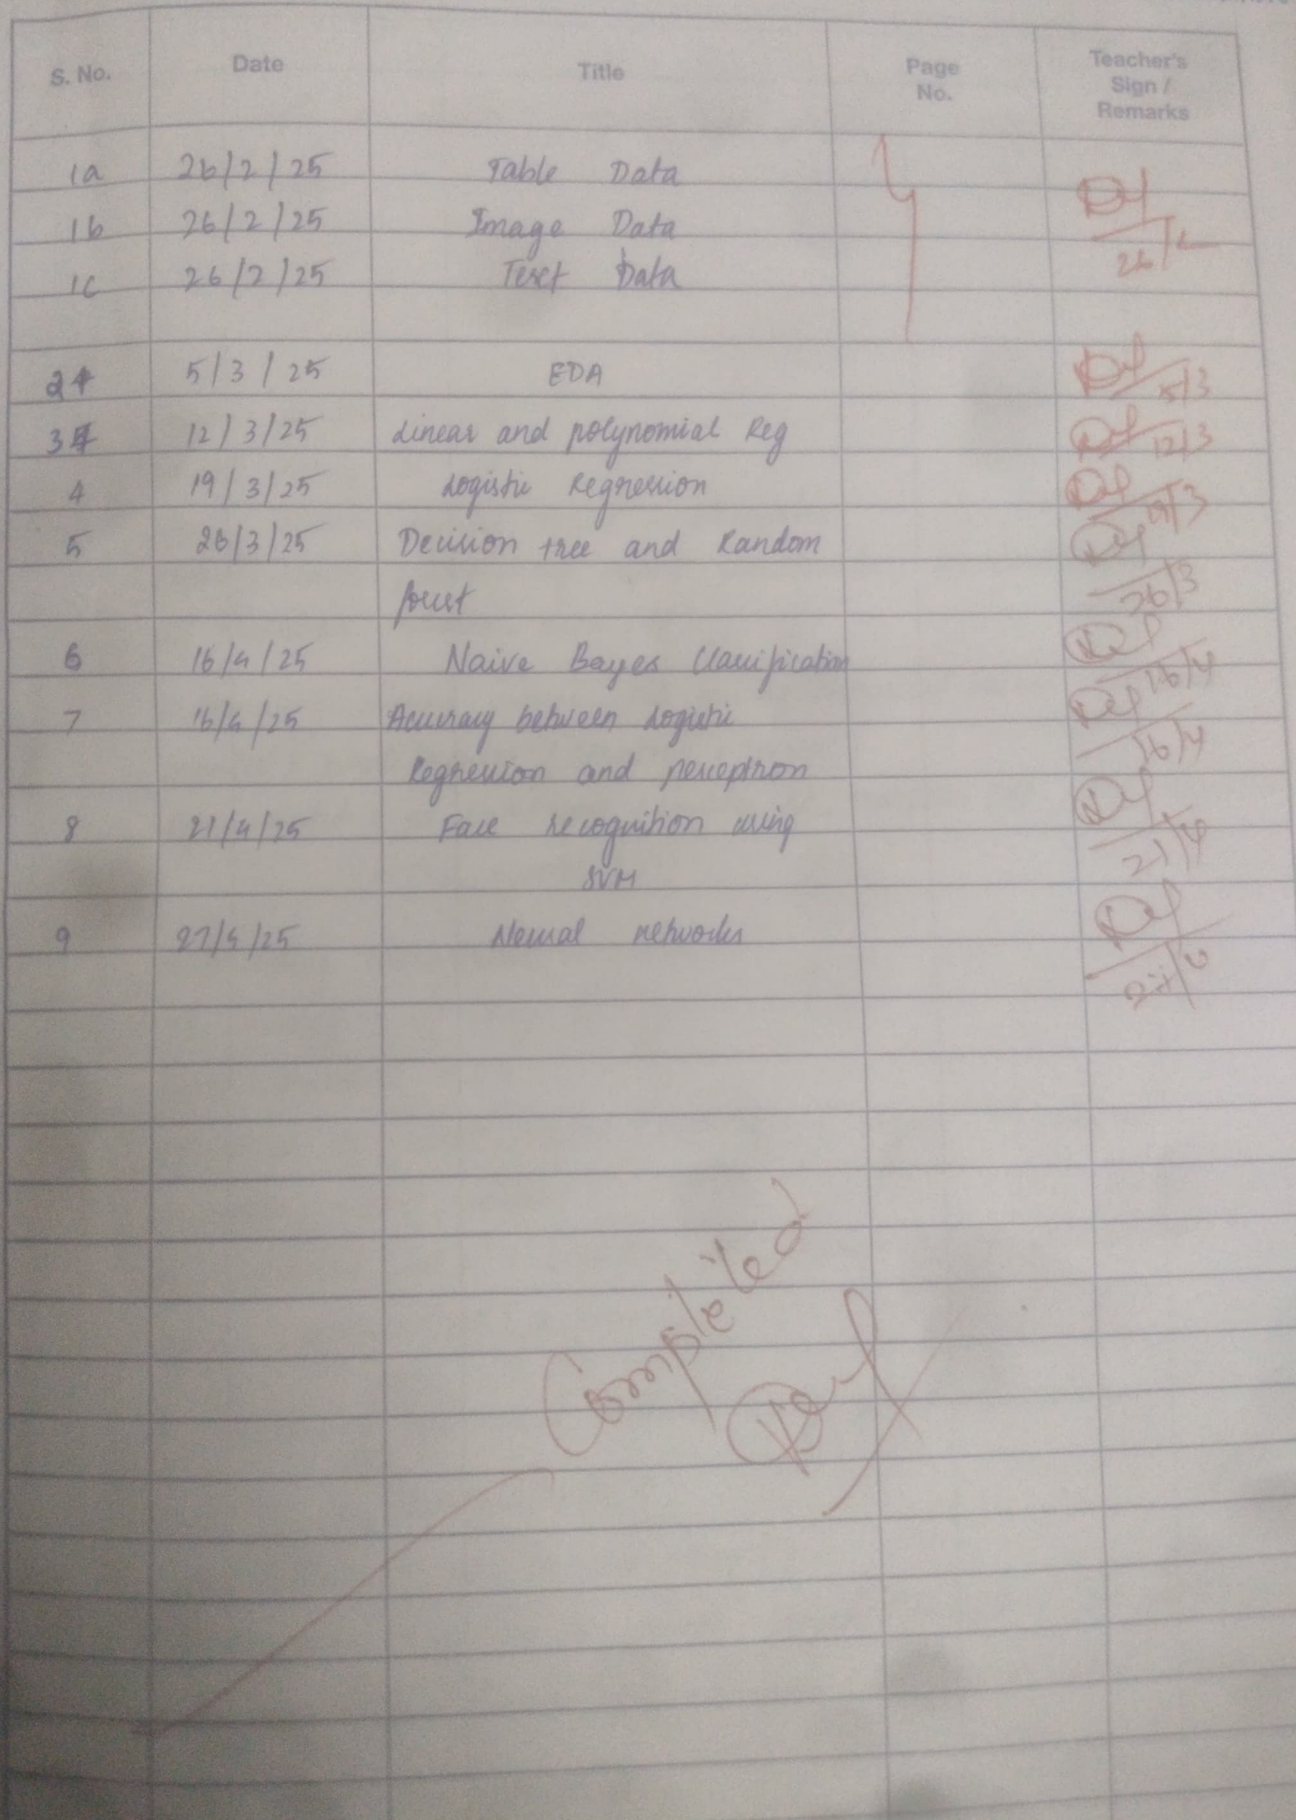 S. No. Date Title Page No. Teacher's Sign / Remarks
1a 26/2/25 Table Data
1b 26/2/25 Image Data 26/2
1c 26/2/25 Text Data
2 5/3/25 EDA 5/3
3 12/3/25 Linear and polynomial Reg 12/3
4 19/3/25 Logistic Regression 19/3
5 26/3/25 Decision tree and Random
forest 26/3
6 16/4/25 Naive Bayes Classification 16/4
7 16/4/25 Accuracy between Logistic 16/4
Regression and perceptron
8 21/4/25 Face recognition using 21/4
SVM
9 27/4/25 Neural networks
Completed